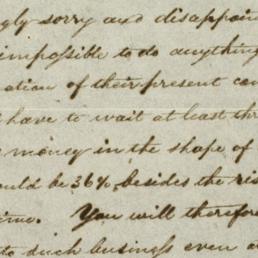 gly sorry and disappoin
impossible to do anything
ation of their present con
have to wait at least thr
money in the shape of
ould be 36% besides the ris
ime. You will therefo
to such business even a